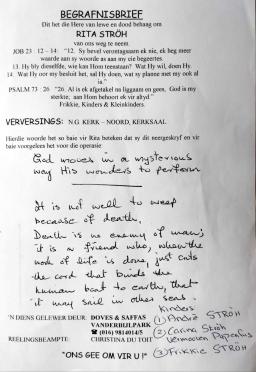 BEGRAFNISBRIEF
Dit het die Here van lewe en dood behaag om
RITA STRÖH
van ons weg te neem
JOB 23 12 – 14: "12. Sy bevel verontagsaam ek nie, ek heg meer
waarde aan sy woorde as aan my eie begeertes.
13. Hy bly dieselfde, wie kan Hom teenstaan? Wat Hy wil, doen Hy.
14. Wat Hy oor my besluit het, sal Hy doen, wat sy planne met my ook al
is."
PSALM 73 26 "26. Al is ek afgetakel na liggaam en gees, God is my
sterkte, aan Hom behoort ek vir altyd."
Frikkie, Kinders & Kleinkinders.
VERVERSINGS: N.G. KERK – NOORD, KERKSAAL
Hierdie woorde het so baie vir Rita beteken dat sy dit neergeskryf en vir
baie voorgelees het voor die operasie
God moves in a mysterious
way His wonders to perform
It is not well to weep
because of death.
Death is no enemy of man;
it is a friend who, when the
work of life is done, just cuts
the cord that binds the
human boat to earth, that
it may sail in other seas.
Kinders
'N DIENS GELEWER DEUR: DOVES & SAFFAS
VANDERBIJLPARK
(016) 9814014/5
REELINGSBEAMPTE: CHRISTINA DU TOIT
(1) André STRÖH
(2) Carina Ströh
Vermeulen
(3) Frikkie STRÖH
"ONS GEE OM VIR U!"